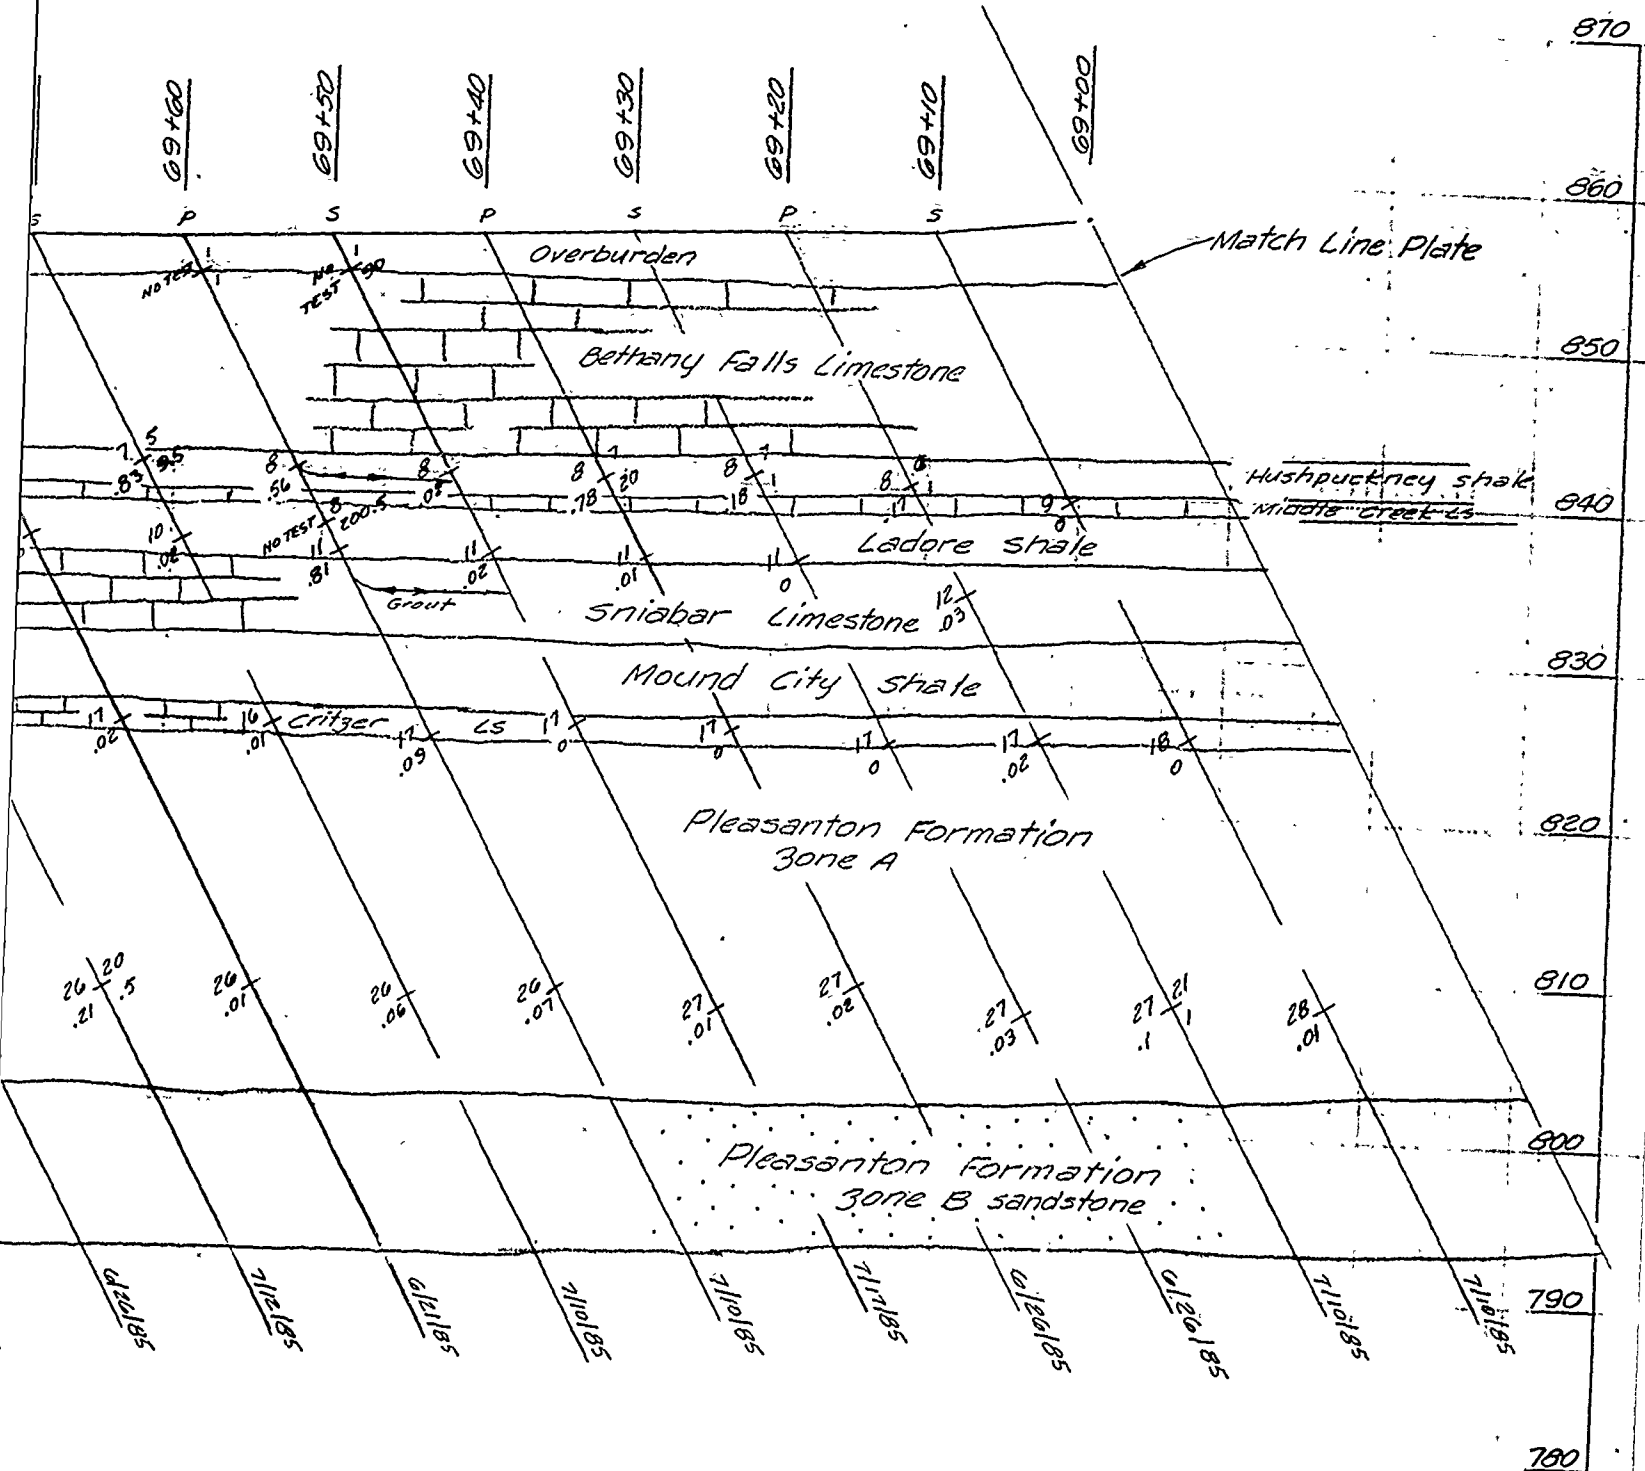 870
69+60
69+50
69+40
69+30
69+20
69+10
69+00
860
S P S P S P S
Overburden
Match Line Plate
1
NO TEST 1
1
NO TEST 90
850
Bethany Falls Limestone
7 5
.83 9.5
8
.56
8
8 7
.78 20
8 7
.18 1
8
.17 1
9
0
Hushpuckney shale
Middle Creek Ls
840
10
.02
NO TEST 8
200.5
11
.81
11
.02
11
.01
11
0
Ladore shale
Grout
Sniabar Limestone
12
.03
830
Mound City shale
17
.02
16
.01
Critzer Ls
17
.09
17
0
17
0
17
0
17
.02
18
0
820
Pleasanton Formation
Zone A
26 20
.21 .5
26
.01
26
.06
26
.07
27
.01
27
.02
27
.03
27 21
.1 1
28
.01
810
800
Pleasanton Formation
Zone B sandstone
6/26/85
7/12/85
6/21/85
7/10/85
7/10/85
7/17/85
6/26/85
6/26/85
7/10/85
7/10/85
790
780